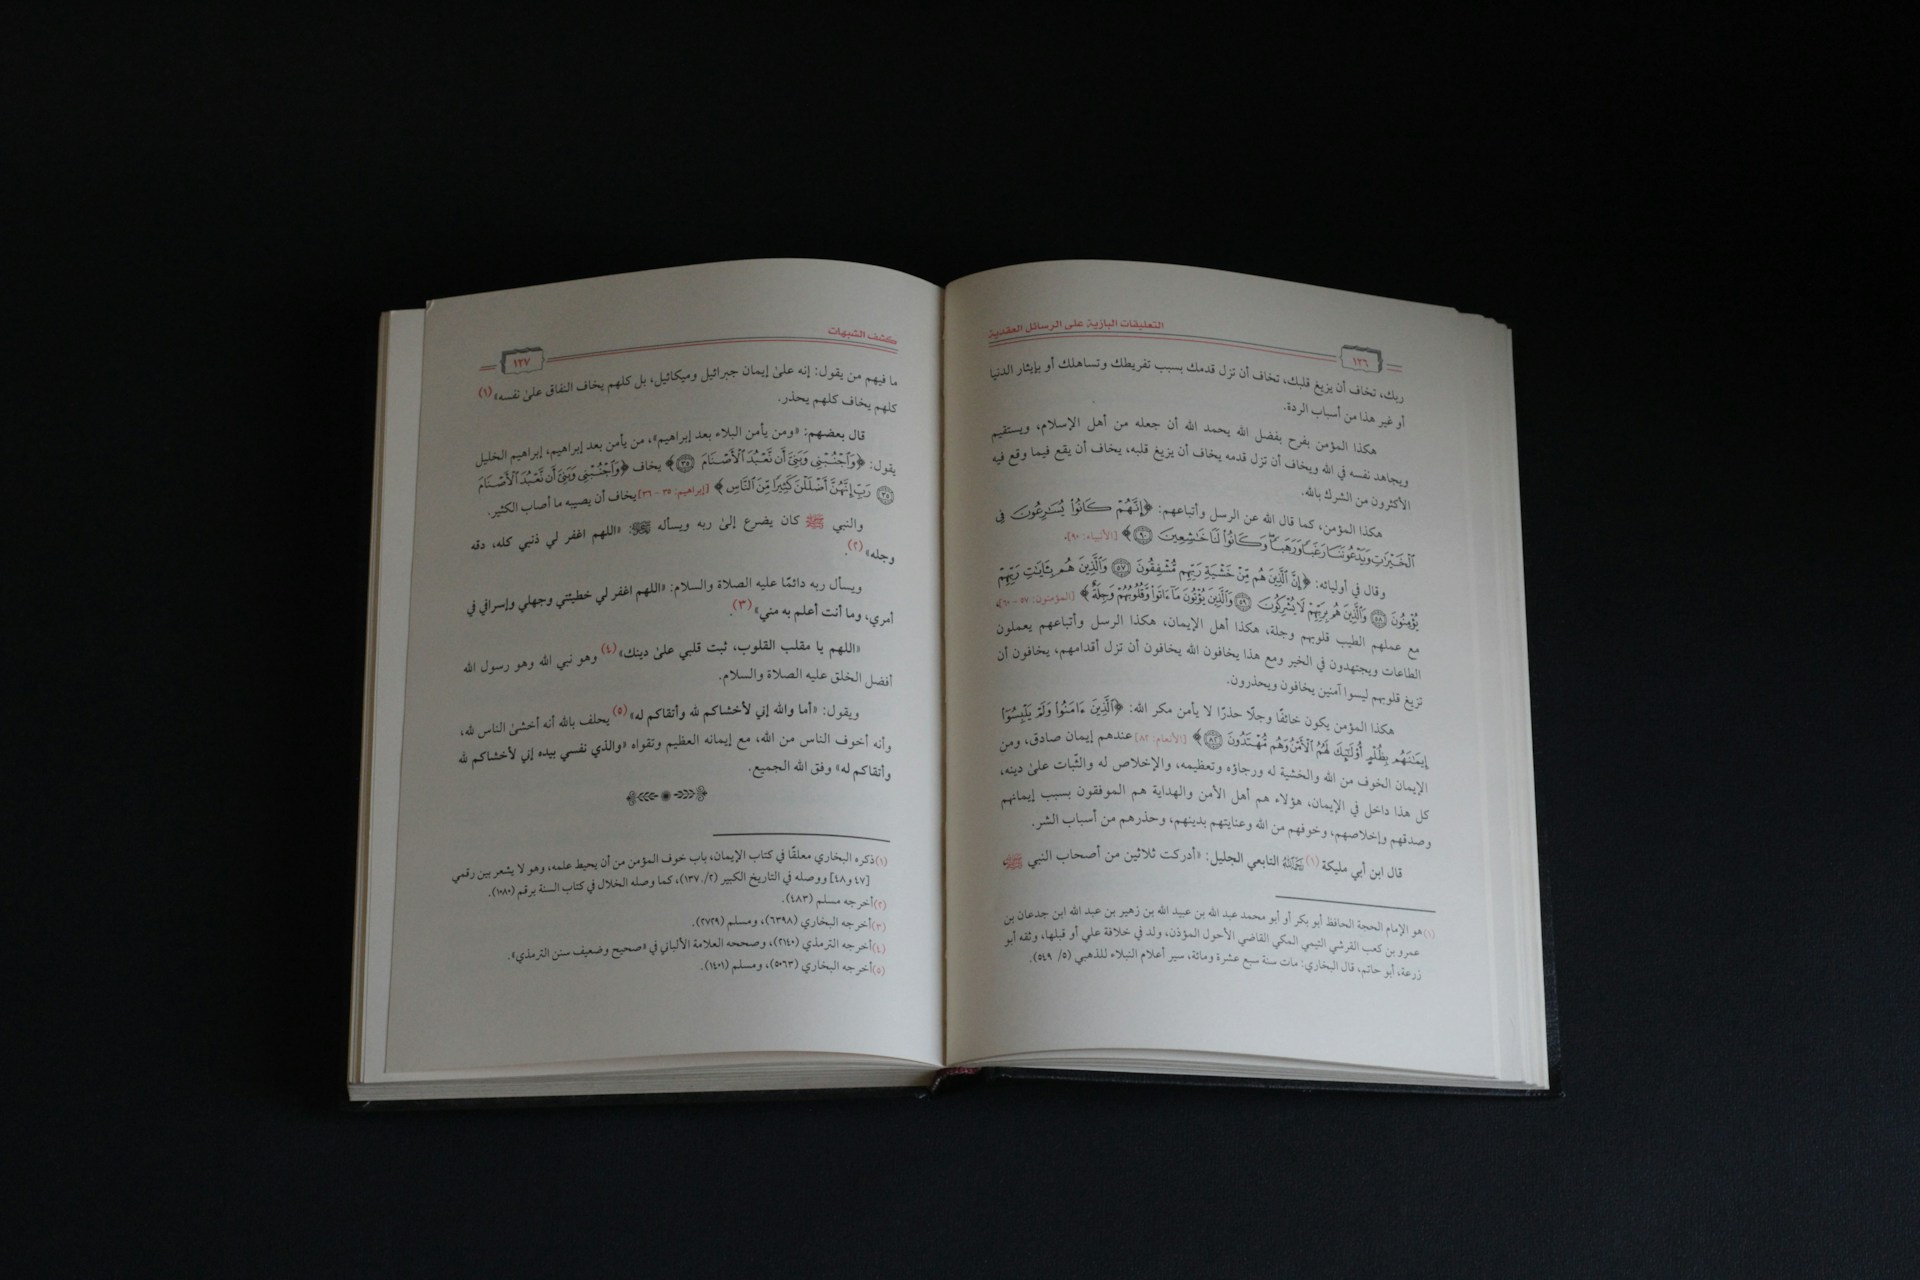 التعليقات البازية على الرسائل العقدية
١٢٦
ربك، تخاف أن يزيغ قلبك، تخاف أن تزل قدمك بسبب تفريطك وتساهلك أو بإيثار الدنيا
أو غير هذا من أسباب الردة.
هكذا المؤمن يفرح بفضل الله يحمد الله أن جعله من أهل الإسلام، ويستقيم
ويجاهد نفسه في الله ويخاف أن تزل قدمه يخاف أن يزيغ قلبه، يخاف أن يقع فيما وقع فيه
الأكثرون من الشرك بالله.
هكذا المؤمن، كما قال الله عن الرسل وأتباعهم: ﴿إِنَّهُمْ كَانُوا۟ يُسَـٰرِعُونَ فِى
ٱلْخَيْرَٰتِ وَيَدْعُونَنَا رَغَبًا وَرَهَبًا ۖ وَكَانُوا۟ لَنَا خَـٰشِعِينَ ٩٠﴾ [الأنبياء: ٩٠].
وقال في أوليائه: ﴿إِنَّ ٱلَّذِينَ هُم مِّنْ خَشْيَةِ رَبِّهِم مُّشْفِقُونَ ٥٧ وَٱلَّذِينَ هُم بِـَٔايَـٰتِ رَبِّهِمْ
يُؤْمِنُونَ ٥٨ وَٱلَّذِينَ هُم بِرَبِّهِمْ لَا يُشْرِكُونَ ٥٩ وَٱلَّذِينَ يُؤْتُونَ مَآ ءَاتَوا۟ وَّقُلُوبُهُمْ وَجِلَةٌ﴾ [المؤمنون: ٥٧ - ٦٠]،
مع عملهم الطيب قلوبهم وجلة، هكذا أهل الإيمان، هكذا الرسل وأتباعهم يعملون
الطاعات ويجتهدون في الخير ومع هذا يخافون الله يخافون أن تزل أقدامهم، يخافون أن
تزيغ قلوبهم ليسوا آمنين يخافون ويحذرون.
هكذا المؤمن يكون خائفًا وجلًا حذرًا لا يأمن مكر الله: ﴿ٱلَّذِينَ ءَامَنُوا۟ وَلَمْ يَلْبِسُوٓا۟
إِيمَـٰنَهُم بِظُلْمٍ أُو۟لَـٰٓئِكَ لَهُمُ ٱلْأَمْنُ وَهُم مُّهْتَدُونَ ٨٢﴾ [الأنعام: ٨٢] عندهم إيمان صادق، ومن
الإيمان الخوف من الله والخشية له ورجاؤه وتعظيمه، والإخلاص له والثبات علىٰ دينه،
كل هذا داخل في الإيمان، هؤلاء هم أهل الأمن والهداية هم الموفقون بسبب إيمانهم
وصدقهم وإخلاصهم، وخوفهم من الله وعنايتهم بدينهم، وحذرهم من أسباب الشر.
قال ابن أبي مليكة (١) رَحِمَهُ ٱللَّهُ التابعي الجليل: «أدركت ثلاثين من أصحاب النبي ﷺ
(١) هو الإمام الحجة الحافظ أبو بكر أو أبو محمد عبد الله بن عبيد الله بن زهير بن عبد الله ابن جدعان بن
عمرو بن كعب القرشي التيمي المكي القاضي الأحول المؤذن، ولد في خلافة علي أو قبلها، وثقه أبو
زرعة، أبو حاتم، قال البخاري: مات سنة سبع عشرة ومائة، سير أعلام النبلاء للذهبي (٥/ ٥٤٩).
كشف الشبهات
١٢٧
ما فيهم من يقول: إنه علىٰ إيمان جبرائيل وميكائيل، بل كلهم يخاف النفاق علىٰ نفسه» (١)
كلهم يخاف كلهم يحذر.
قال بعضهم: «ومن يأمن البلاء بعد إبراهيم»، من يأمن بعد إبراهيم، إبراهيم الخليل
يقول: ﴿وَٱجْنُبْنِى وَبَنِىَّ أَن نَّعْبُدَ ٱلْأَصْنَامَ ٣٥﴾ يخاف ﴿وَٱجْنُبْنِى وَبَنِىَّ أَن نَّعْبُدَ ٱلْأَصْنَامَ
٣٥ رَبِّ إِنَّهُنَّ أَضْلَلْنَ كَثِيرًا مِّنَ ٱلنَّاسِ﴾ [إبراهيم: ٣٥ - ٣٦] يخاف أن يصيبه ما أصاب الكثير.
والنبي ﷺ كان يضرع إلىٰ ربه ويسأله ﷺ: «اللهم اغفر لي ذنبي كله، دقه
وجله» (٢).
ويسأل ربه دائمًا عليه الصلاة والسلام: «اللهم اغفر لي خطيئتي وجهلي وإسرافي في
أمري، وما أنت أعلم به مني» (٣).
«اللهم يا مقلب القلوب، ثبت قلبي علىٰ دينك» (٤) وهو نبي الله وهو رسول الله
أفضل الخلق عليه الصلاة والسلام.
ويقول: «أما والله إني لأخشاكم لله وأتقاكم له» (٥) يحلف بالله أنه أخشىٰ الناس لله،
وأنه أخوف الناس من الله، مع إيمانه العظيم وتقواه «والذي نفسي بيده إني لأخشاكم لله
وأتقاكم له» وفق الله الجميع.
(١) ذكره البخاري معلقًا في كتاب الإيمان، باب خوف المؤمن من أن يحيط علمه، وهو لا يشعر بين رقمي
[٤٧ و٤٨] ووصله في التاريخ الكبير (٢/ ١٣٧)، كما وصله الخلال في كتاب السنة برقم (١٠٨٠).
(٢) أخرجه مسلم (٤٨٣).
(٣) أخرجه البخاري (٦٣٩٨)، ومسلم (٢٧٢٩).
(٤) أخرجه الترمذي (٢١٤٠)، وصححه العلامة الألباني في «صحيح وضعيف سنن الترمذي».
(٥) أخرجه البخاري (٥٠٦٣)، ومسلم (١٤٠١).